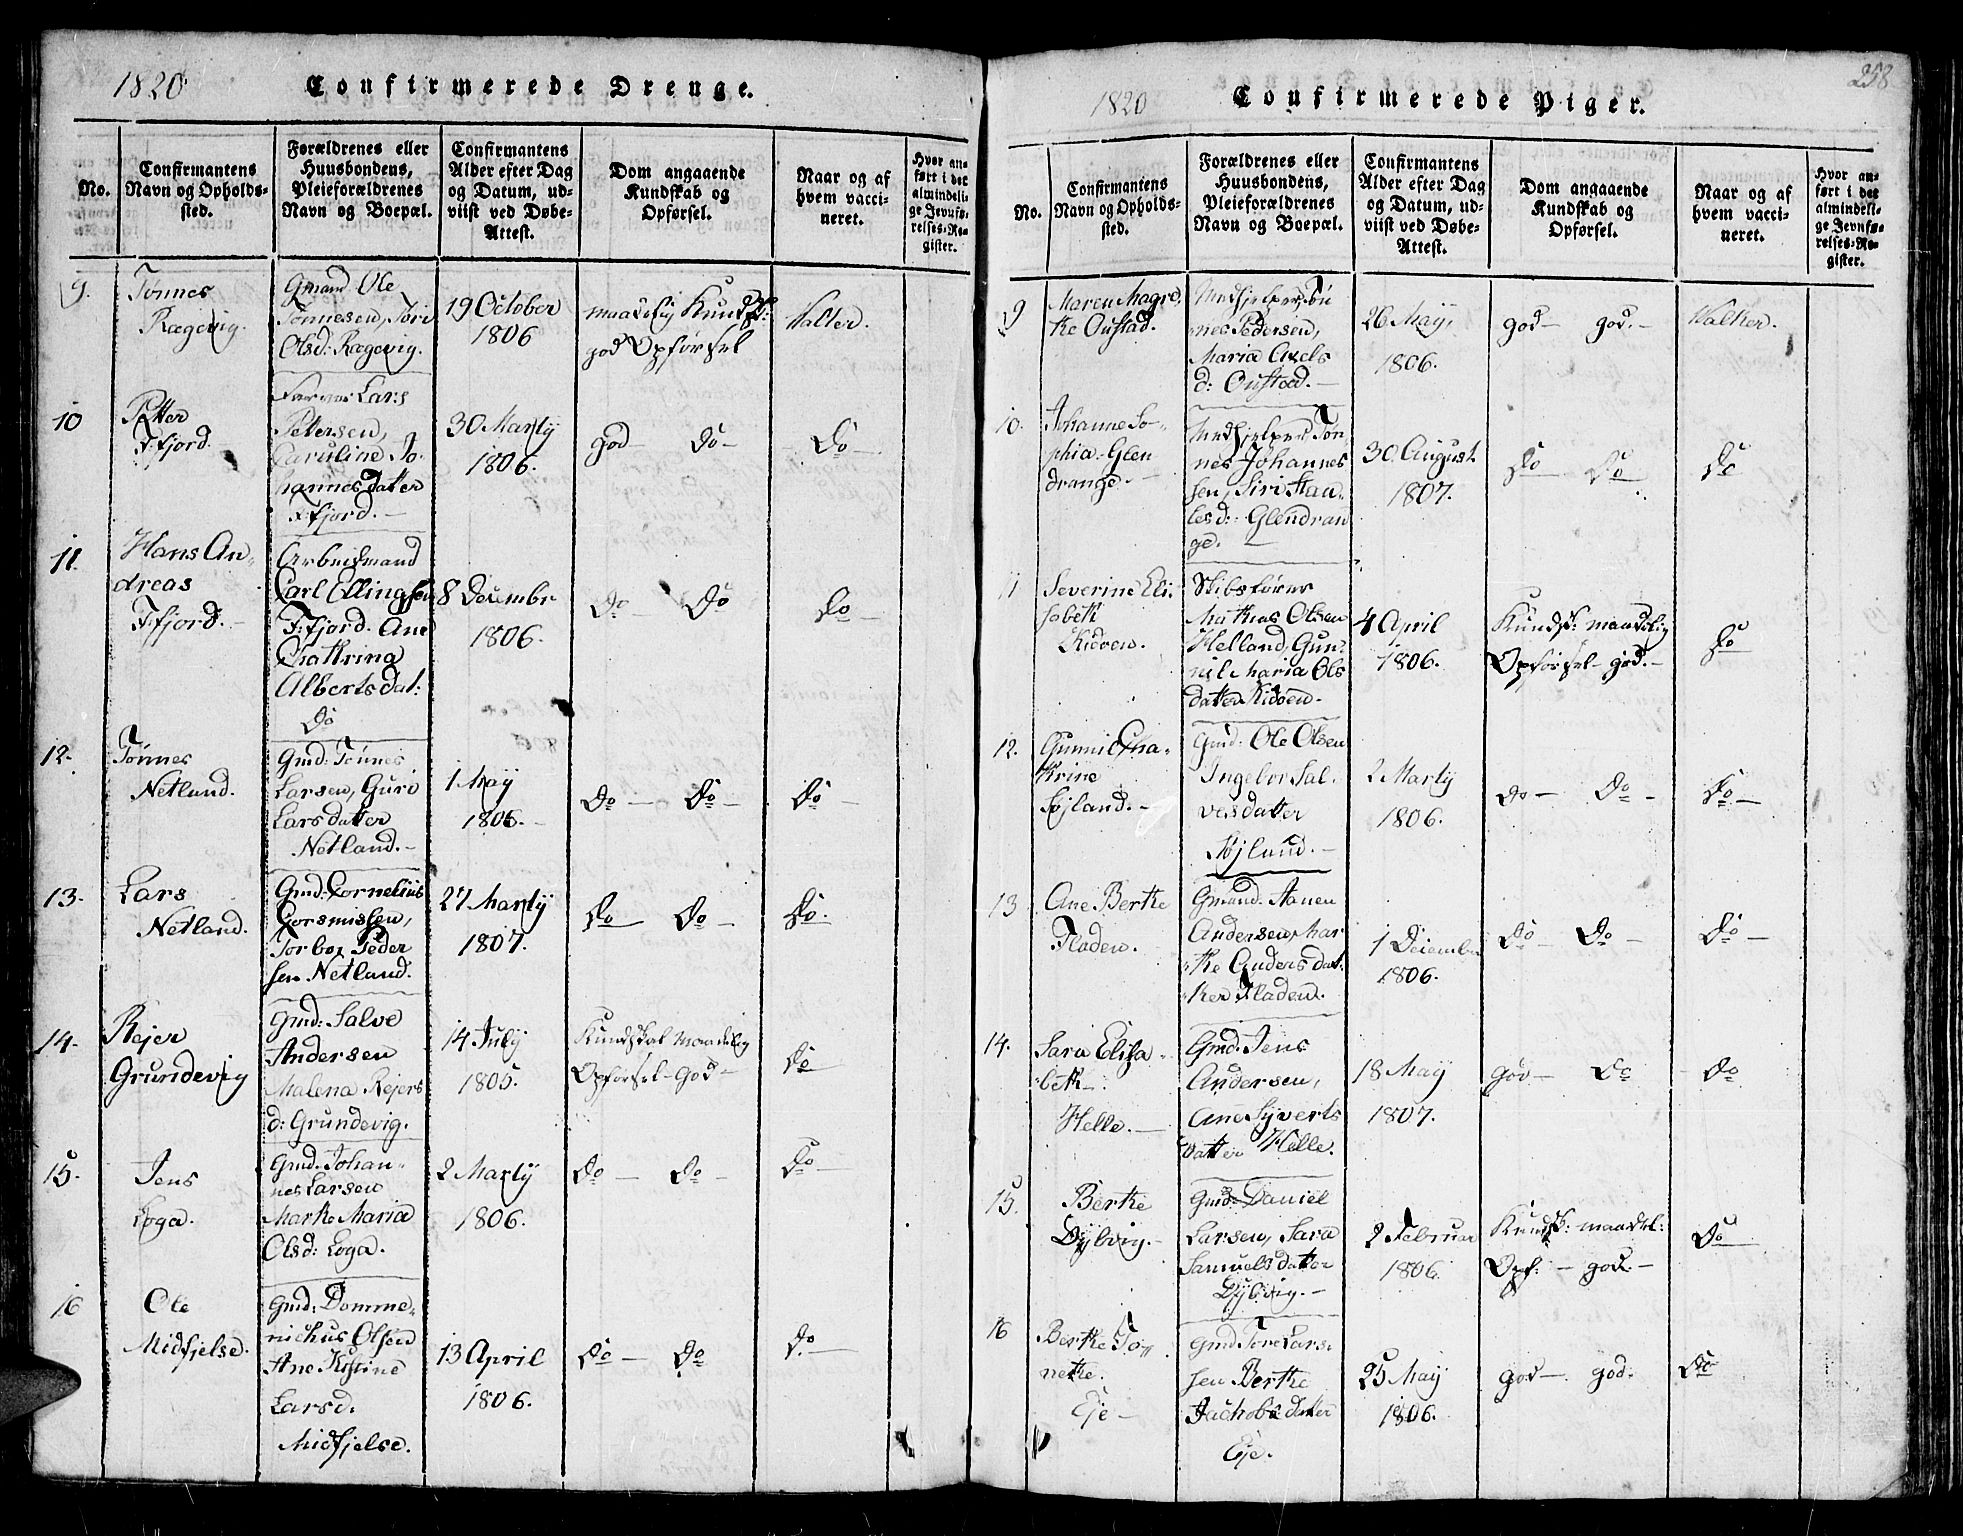 1820
Confirmerede Drenge.
No.
Confirmantens
Navn og Opholds-
sted.
Forældrenes eller
Huusbondens,
Pleieforældrenes
Navn og Boepæl.
Confirmantens
Alder efter Dag
og Datum, ud-
viist ved Døbe-
Attest.
Dom angaaende
Kundskab og
Opførsel.
Naar og af
hvem vacci-
neret.
Hvor an-
ført i det
almindeli-
ge Jevnfø-
relses-Re-
gister.
9.
Tønnes
Rægevig.
Gmand Ole
Tønnesen, Siri
Olsd: Rægevig.
19 October
1806
maadelig Kundsk:
god Opførsel
Walter.
10
Petter
F:fjord.
Lars
Petersen,
Caruline Jo-
hannesdatter
F:fjord. -
30 Martÿ
1806.
god - Do -
Do -
11.
Hans An-
dreas
F:fjord. -
Arbeidsmand
Carl Ellingsen
F:fjord. Ane
Chatrina
Albertsdat:
Do
8 Decembr
1806.
Do - Do
Do -
12.
Tønnes
Netland.
Gmd: Tønnes
Larsen, Guri
Larsdatter
Netland. -
1 Maÿ
1806. -
Do - Do -
Do -
13.
Lars
Netland.
Gmd: Cornelius
Gorsmissen,
Torbor Peder
sen Netland.
27 Martÿ
1807.
Do - Do -
Do.
14.
Rejer
Grundevig
Gmd: Salve
Andersen
Malena Rejers
d: Grundevig.
14 Julÿ
1805.
Kundskab maadelig
Opførsel - God -
Do
15.
Jens
Loga.
Gmd: Johan-
nes Larsen
Marte Maria
Olsd: Loga.
2 Martÿ
1806.
Do - Do -
Do -
16
Ole
Midfjelse.
Gmd: Domme-
nichus Olsen
Ane Kistine
Larsd.
Midfjelse.
13 April
1806.
Do - Do
Do -
258
1820
Confirmerede Piger.
No.
Confirmantens
Navn og Opholds-
sted.
Forældrenes eller
Huusbondens,
Pleieforældrenes
Navn og Boepæl.
Confirmantens
Alder efter Dag
og Datum, ud-
viist ved Døbe-
Attest.
Dom angaaende
Kundskab og
Opførsel.
Naar og af
hvem vacci-
neret.
Hvor an-
ført i det
almindeli-
ge Jevnfø-
relses-Re-
gister.
9
Maren Magre
te Oustad.
Medhjelper, Tøn
nes Pedersen,
Maria Axels
d: Oustad. -
26 Maÿ,
1806.
god - god. -
Walter.
10.
Johanne So-
phia - Glen
drange. -
Medhjelper, Tøn
nes Johannes
sen, Siri Staa-
lesd: Glendran
ge. -
30 August
1807.
Do - Do
Do
11
Severine Eli-
sabeth
Kidøen.
Skibsfører
Mathias Olsen
Helland, Gun-
nil Maria Ols
datter Kidøen. -
4 April
1806.
Kundsk: maadelig
Opførsel - god. -
Do
12.
Gunnil Cha-
trine
Søjland. -
Gmd: Ole Olsen
Ingebor Sal-
vesdatter
Søjland. -
2 Martÿ
1806.
Do - Do -
Do -
13
Ane Berte
Fladen.
Gmand. Aanen
Andersen, Mar
te Andersdat-
ter Fladen.
1 December
1806.
Do - Do -
Do -
14.
Sara Elisa-
beth -
Helle. -
Gmd. Jens
Andersen,
Ane Syverts
datter Helle.
18 Maÿ
1807.
god - Do
Do
15.
Berte
Dybvig. -
Gmd: Daniel
Larsen, Sara
Samuelsdatter
Dÿbvig. -
2 Februar
1806.
Kundsk: maadel:
Opf: - god. -
Do
16
Berte To-
nette.
Eje -
Gmd Tore Lars-
sen Berte
Jachobsdatter
Eje.
25 Maÿ
1806.
god - god.
Do